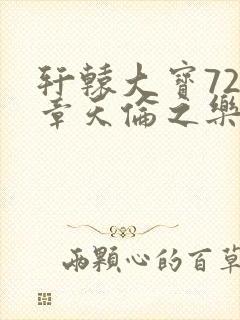 轩辕大寳72
章天倫之樂
兩顆心的百草